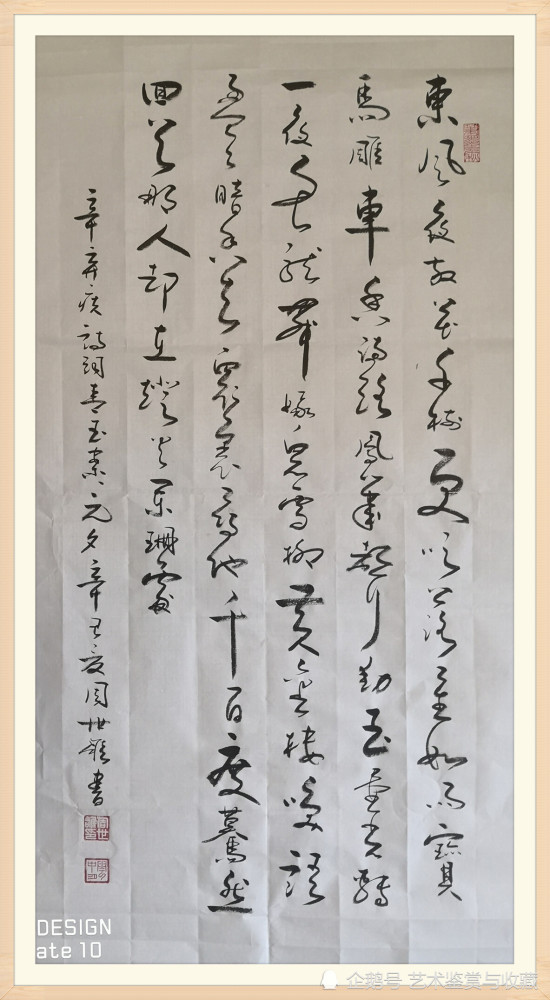 東風夜放花千樹更吹落星如雨寶
馬雕車香滿路鳳簫聲動玉壺光轉
一夜魚龍舞蛾兒雪柳黃金縷笑語
盈盈暗香去衆裏尋他千百度驀然
回首那人却在燈火闌珊處
辛弃疾詩詞青玉案元夕辛丑夏周世雄書
DESIGN
ate 10
企鹅号 艺术鉴赏与收藏